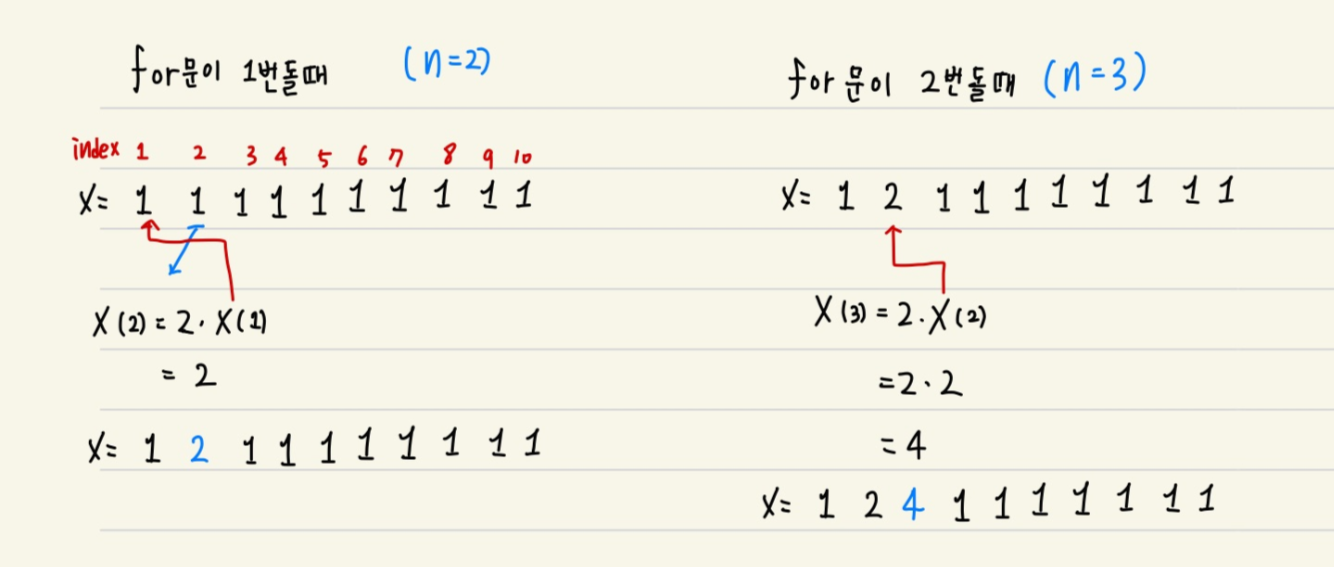 for문이 1번돌때 (n=2)
index 1 2 3 4 5 6 7 8 9 10
X= 1 1 1 1 1 1 1 1 1 1
X(2) = 2·X(1)
= 2
X= 1 2 1 1 1 1 1 1 1 1
for문이 2번돌때 (n=3)
X= 1 2 1 1 1 1 1 1 1 1
X(3) = 2·X(2)
=2·2
=4
X= 1 2 4 1 1 1 1 1 1 1